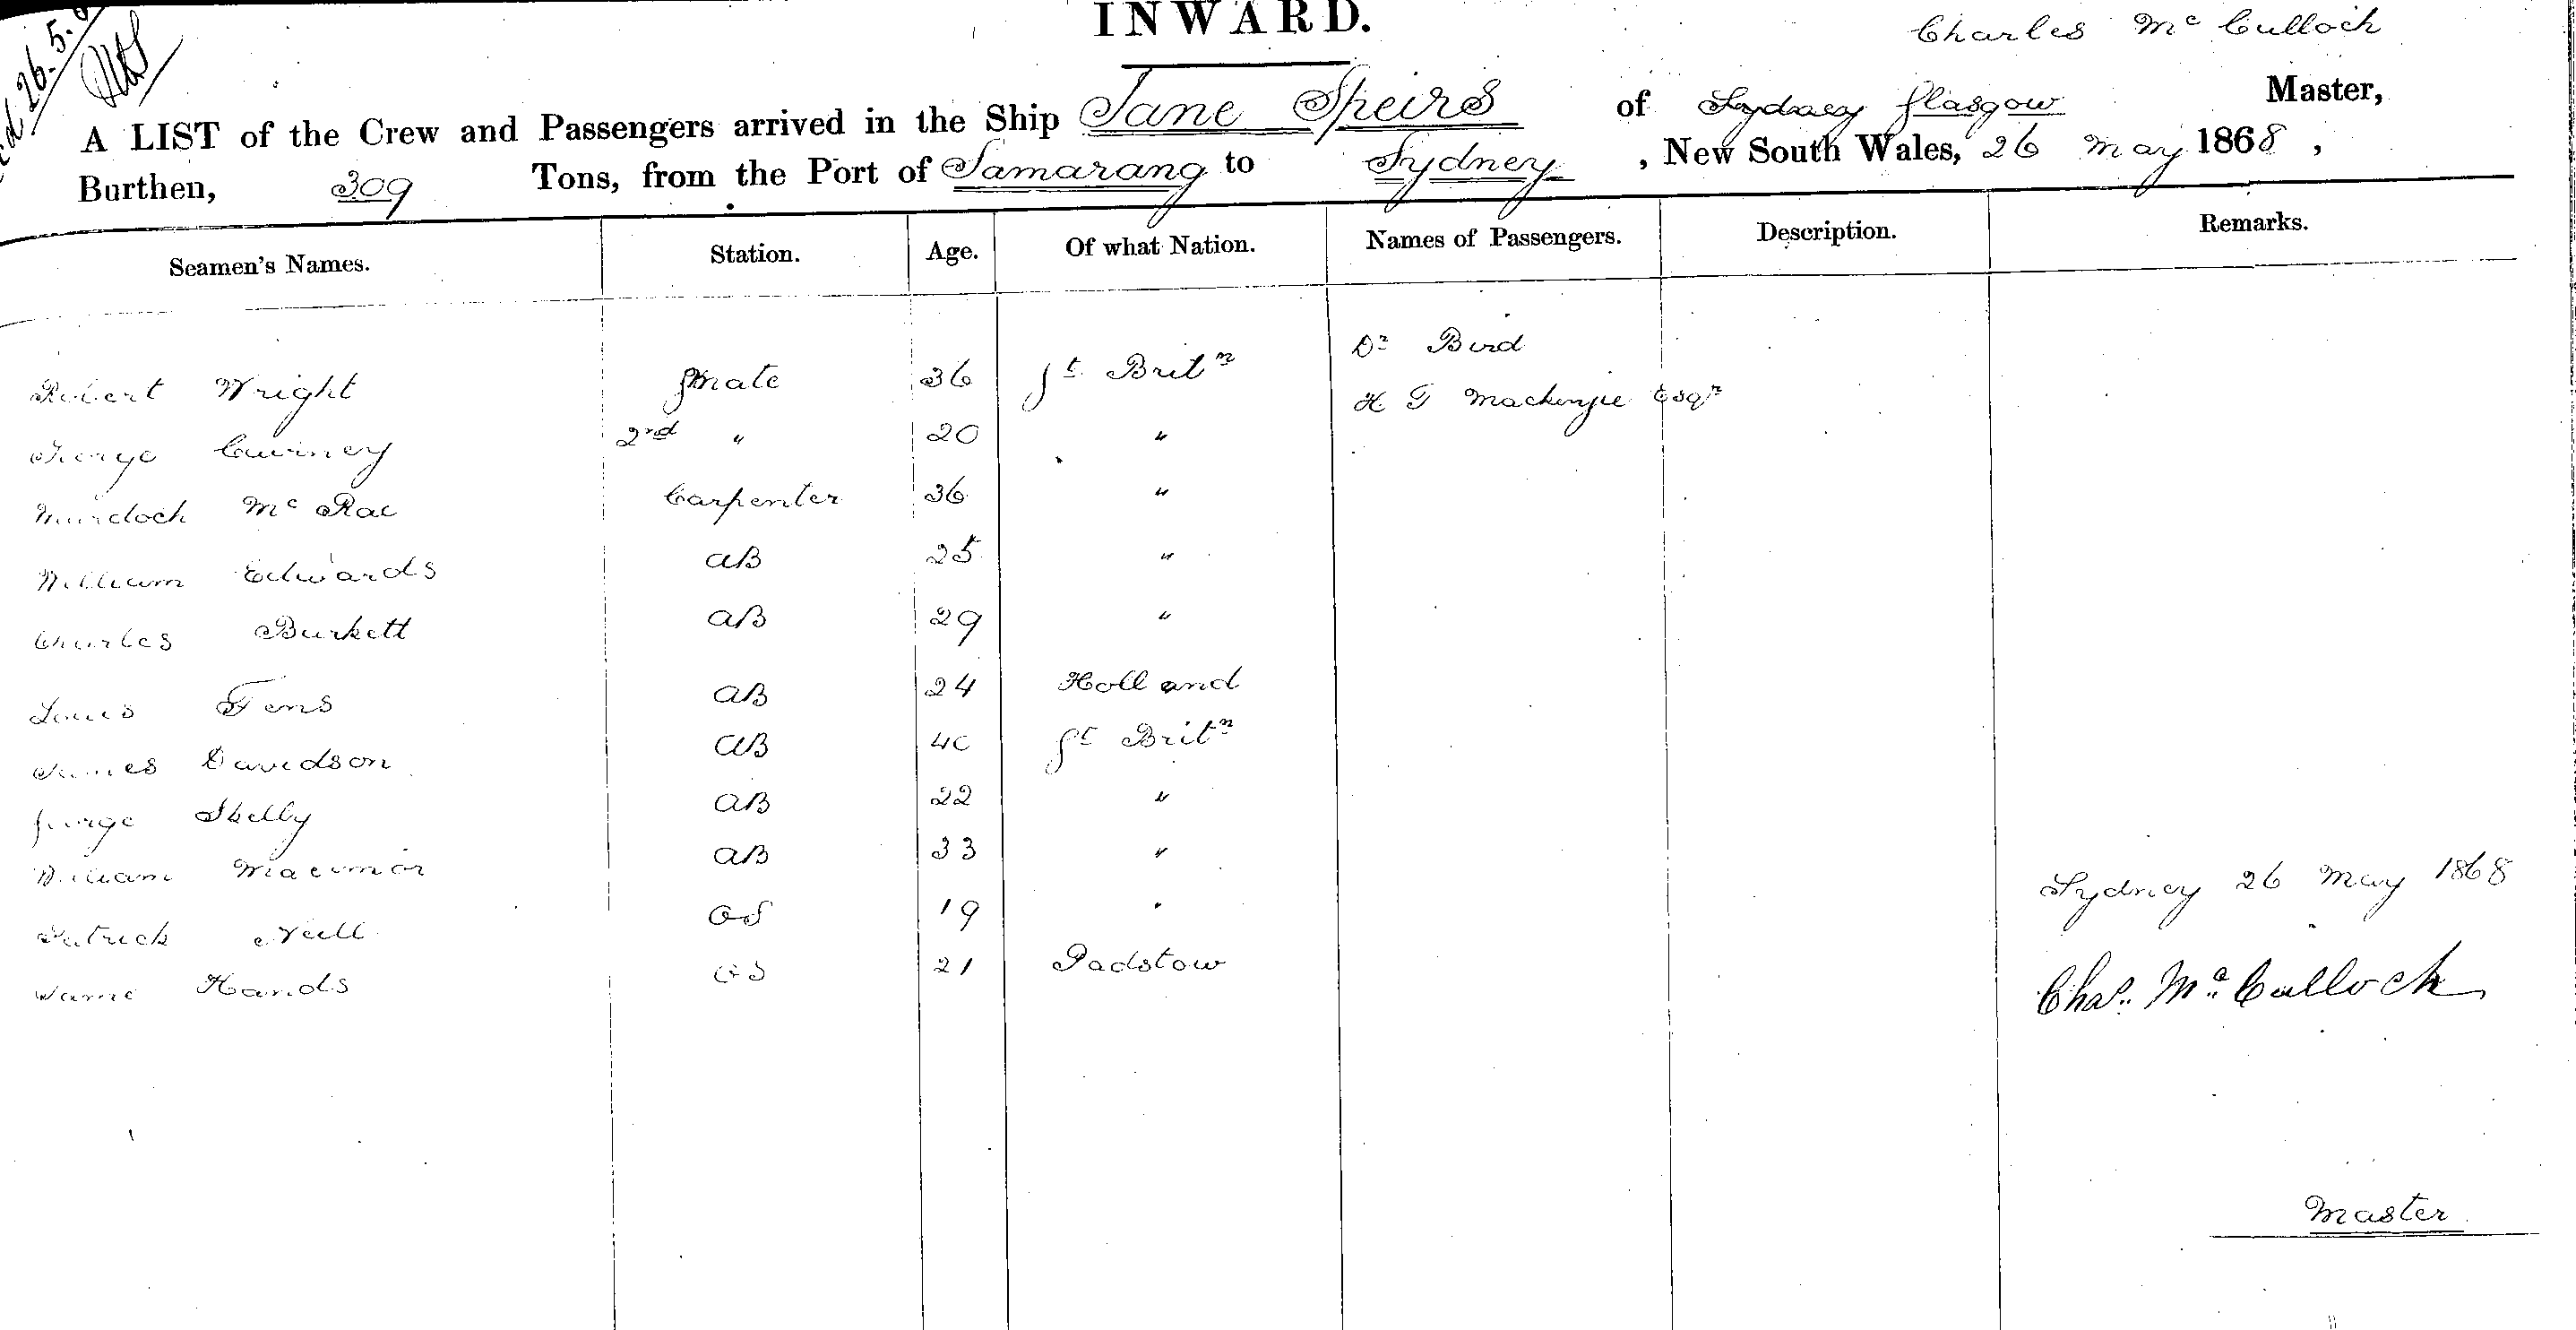 26.5.
INWARD.
Charles Mc Culloch
A LIST of the Crew and Passengers arrived in the Ship Jane Speirs of Sydney Glasgow Master,
Burthen, 309 Tons, from the Port of Samarang to Sydney , New South Wales, 26 May 1868 ,
Seamen's Names. Station. Age. Of what Nation. Names of Passengers. Description. Remarks.
Dr Bird
Robert Wright Mate 36 Gt Britn
H G Mackenzie Esqr
George 2nd " 20 "
Murdoch Mc Rae Carpenter 36 "
William Edwards AB 25 "
Charles Burkett AB 29 "
Louis Fens AB 24 Holland
James Davidson AB 40 Gt Britn
George Skelly AB 22 "
William AB 33 "
Sydney 26 May 1868
Patrick Neill OS 19 "
Hands OS 21 Padstow
Chas. Mc Culloch
Master